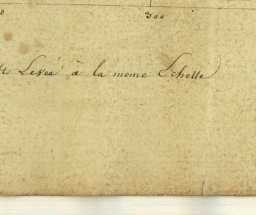 300
Levé à la mome Echelle